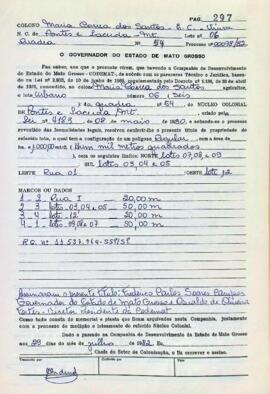 PAG. 297
COLONO Maria Correa dos Santos - E. C. - Viuva
N. C. de Pontes e Lacerda - Mt. Lote nº 06
Quadra nº 54 Processo nº 00078/82
O GOVERNADOR DO ESTADO DE MATO GROSSO
Faz saber, aos que o presente virem, que havendo a Companhia de Desenvolvimento
do Estado de Mato Grosso - CODEMAT, de acordo com os pareceres Técnico e Jurídico, baseados
de 1973, concedido, ao colono Maria Correa dos Santos agricultor, o
lote urbano número 06 (Seis
da quadra nº 54, DO NÚCLEO COLONIAL
DE Pontes e Lacerda Mt.
Lei nº 4183 de 08 de maio de 1980, e achando-se o processo
revestido das formalidades legais, resolveu conferir-lhe o presente título de propriedade do
referido lote, o qual tem a configuração de um polígono Regular, com a área de
1.000,00 mts² (Hum mil metros quadrados
e, com os seguintes limites: NORTE lotes 07, 08, e 09
SUL lotes 03, 04 e 05
LESTE Rua 01 OESTE lote 12
MARCOS OU DADOS
1 - 2 Rua I 20,00 m
2 - 3 lotes 03, 04 e 05 50,00 m
3 - 4 lote 12 20,00 m
4 - 1 lotes 09, 08 e 07 50,00 m
R.G. nº 11.537.964-SSP/SP
Assinaram o presente título: Frederico Carlos Soares Campos
Governador do Estado de Mato Grosso e Osvaldo de Oliveira
Fortes - Diretor Presidente da Codemat
Como tudo consta do memorial e planta que ficam arquivados nesta Companhia, juntamente
com o processo de medição e loteamento do referido Núcleo Colonial.
Dado e passado na Companhia de Desenvolvimento do Estado de Mato Grosso
aos 29 dias do mês de julho 1982. Eu
Chefe do Setor de Colonização, o fiz escrever e assino.
TRANSCRITO POR
CONFERIDO POR